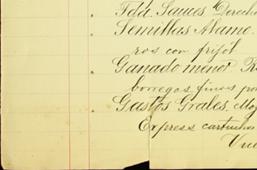 Fda. Sauces Derecho
Semillas Abame.
ros con frijol
Ganado menor. R
borregos finos por
Gastos Grales. Moz
Express cartuchos